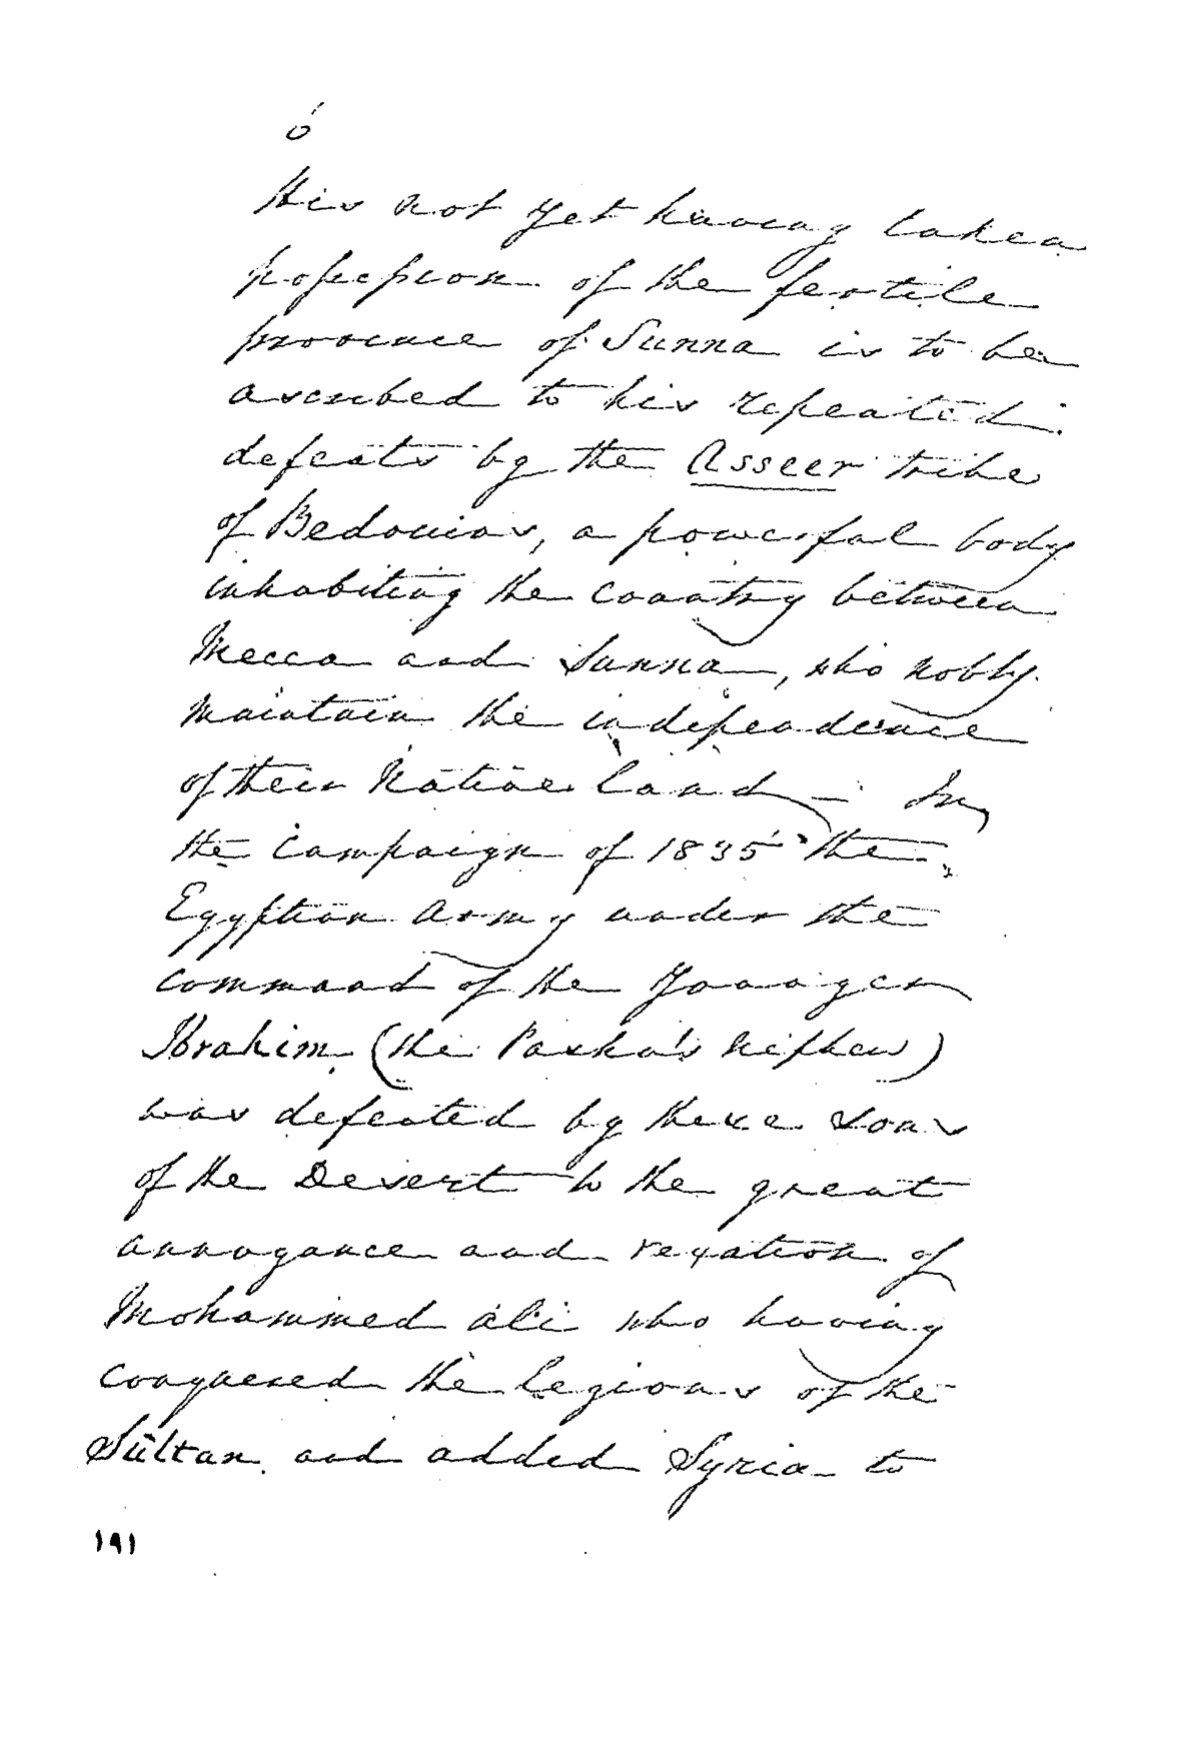 His not yet having taken
possession of the fertile
province of Sunna is to be
ascribed to his repeated
defeats by the Asseer tribe
of Bedouins, a powerful body
inhabiting the country between
Mecca and Sunna, who nobly
maintain the independence
of their Native land — In
the Campaign of 1835 the
Egyptian Army under the
command of the Younger
Ibrahim (the Pasha's Nephew)
was defeated by these sons
of the Desert to the great
annoyance and vexation of
Mohammed Ali who having
conquered the legions of the
Sultan and added Syria to
١٩١